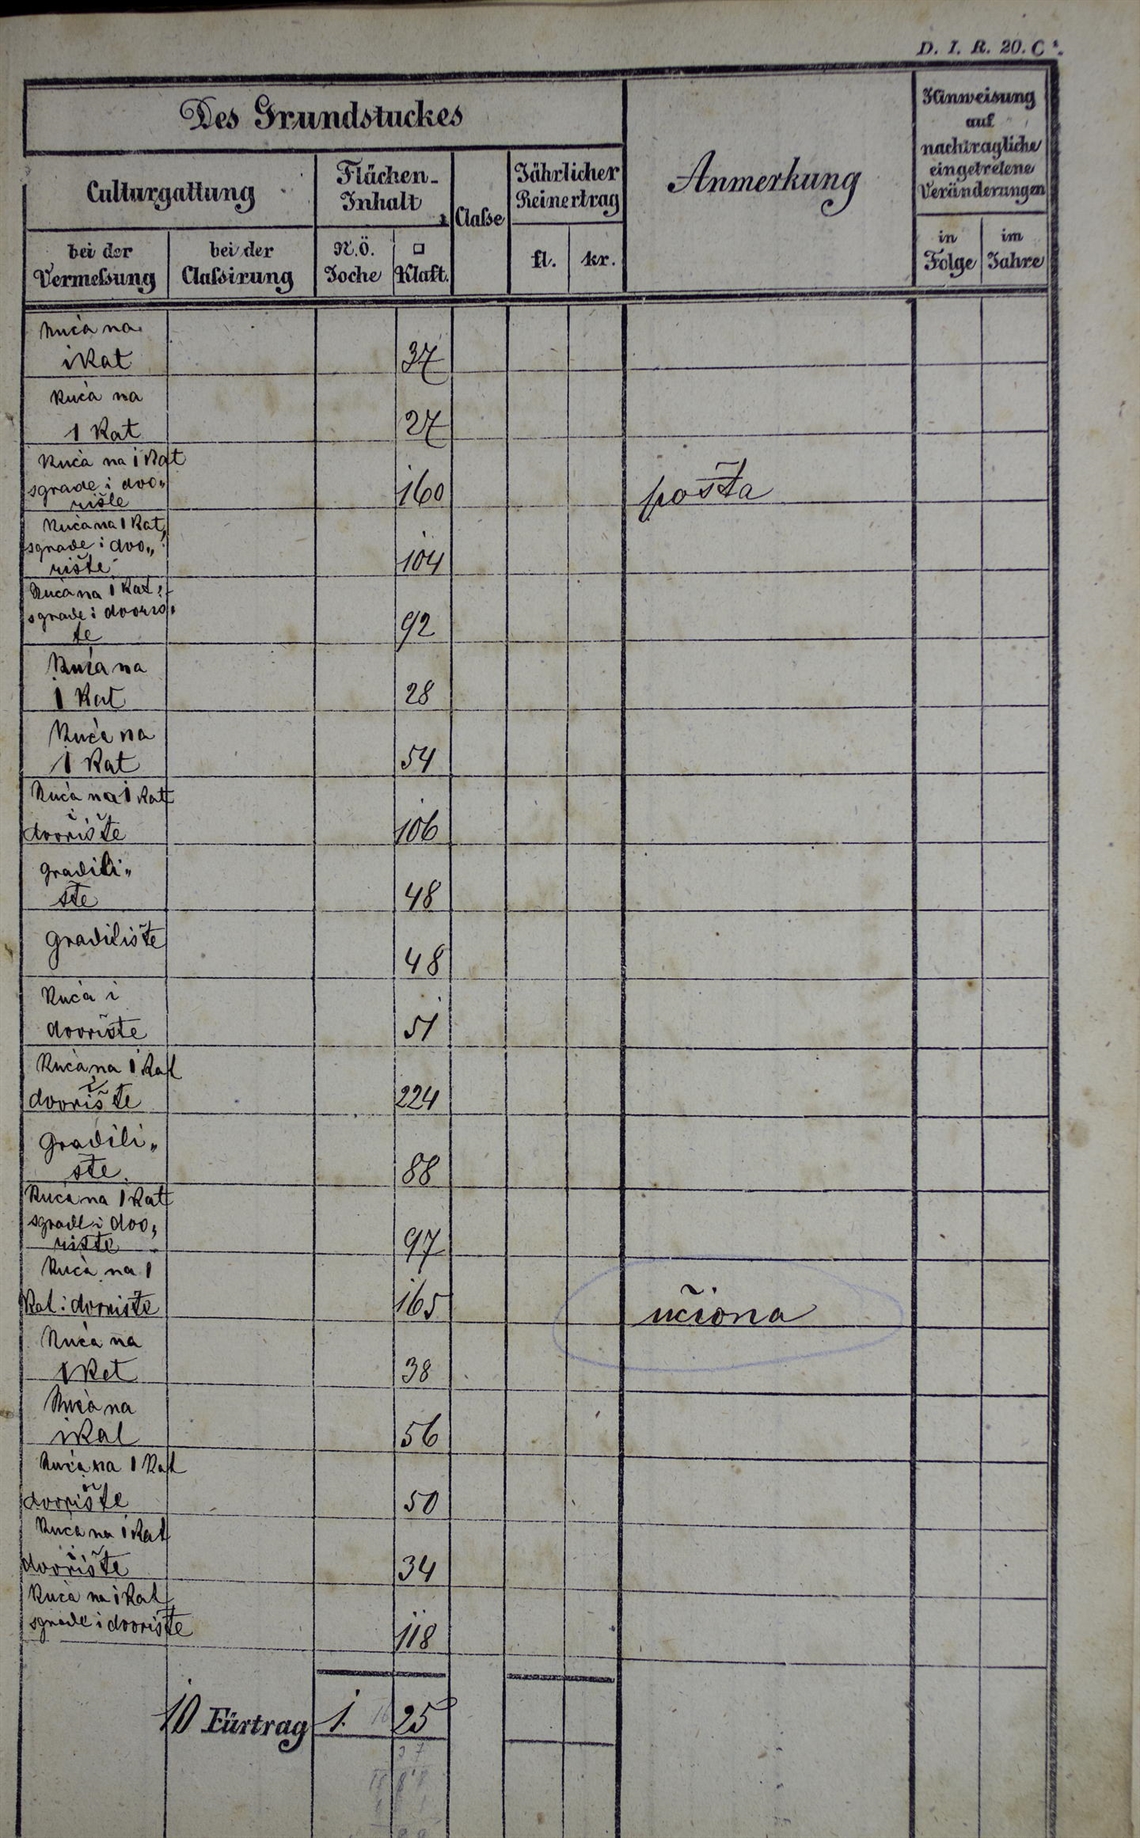 D. I. R. 20. C
Des Grundstuckes
Anmerkung
Hinweisung
auf
nachtragliche
eingetretene
Veränderungen
Culturgattung
Flächen-
Inhalt
Claſse
Jährlicher
Reinertrag
bei der
Vermeſsung
bei der
Claſsirung
N.Ö.
Joche
□
Klaft.
fl.
kr.
in
Folge
im
Jahre
Kuća na
1 Kat 37
Kuća na
1 Kat 27
Kuća na 1 Kat
sgrade i dvo„
rište 160 pošta
Kuća na 1 Kat,
sgrade i dvo„
rište 104
Kuća na 1 Kat
sgrade i dvoriš
te 92
Kuća na
1 Kat 28
Kuća na
1 Kat 54
Kuća na 1 Kat
i
dvorište 106
gradili„
šte 48
gradilište 48
Kuća i
dvorište 51
Kuća na 1 Kat
i
dvorište 224
gradili„
šte 88
Kuća na 1 Kat
sgrade i dvo„
rište 97
Kuća na 1
Kat i dvorište 165 učiona
Kuća na
1 Kat 38
Kuća na
1 Kat 56
Kuća na 1 Kat
i
dvorište 50
Kuća na 1 Kat
i
dvorište 34
Kuća na 1 Kat
sgrade i dvorište 118
10 Fürtrag 1. 25